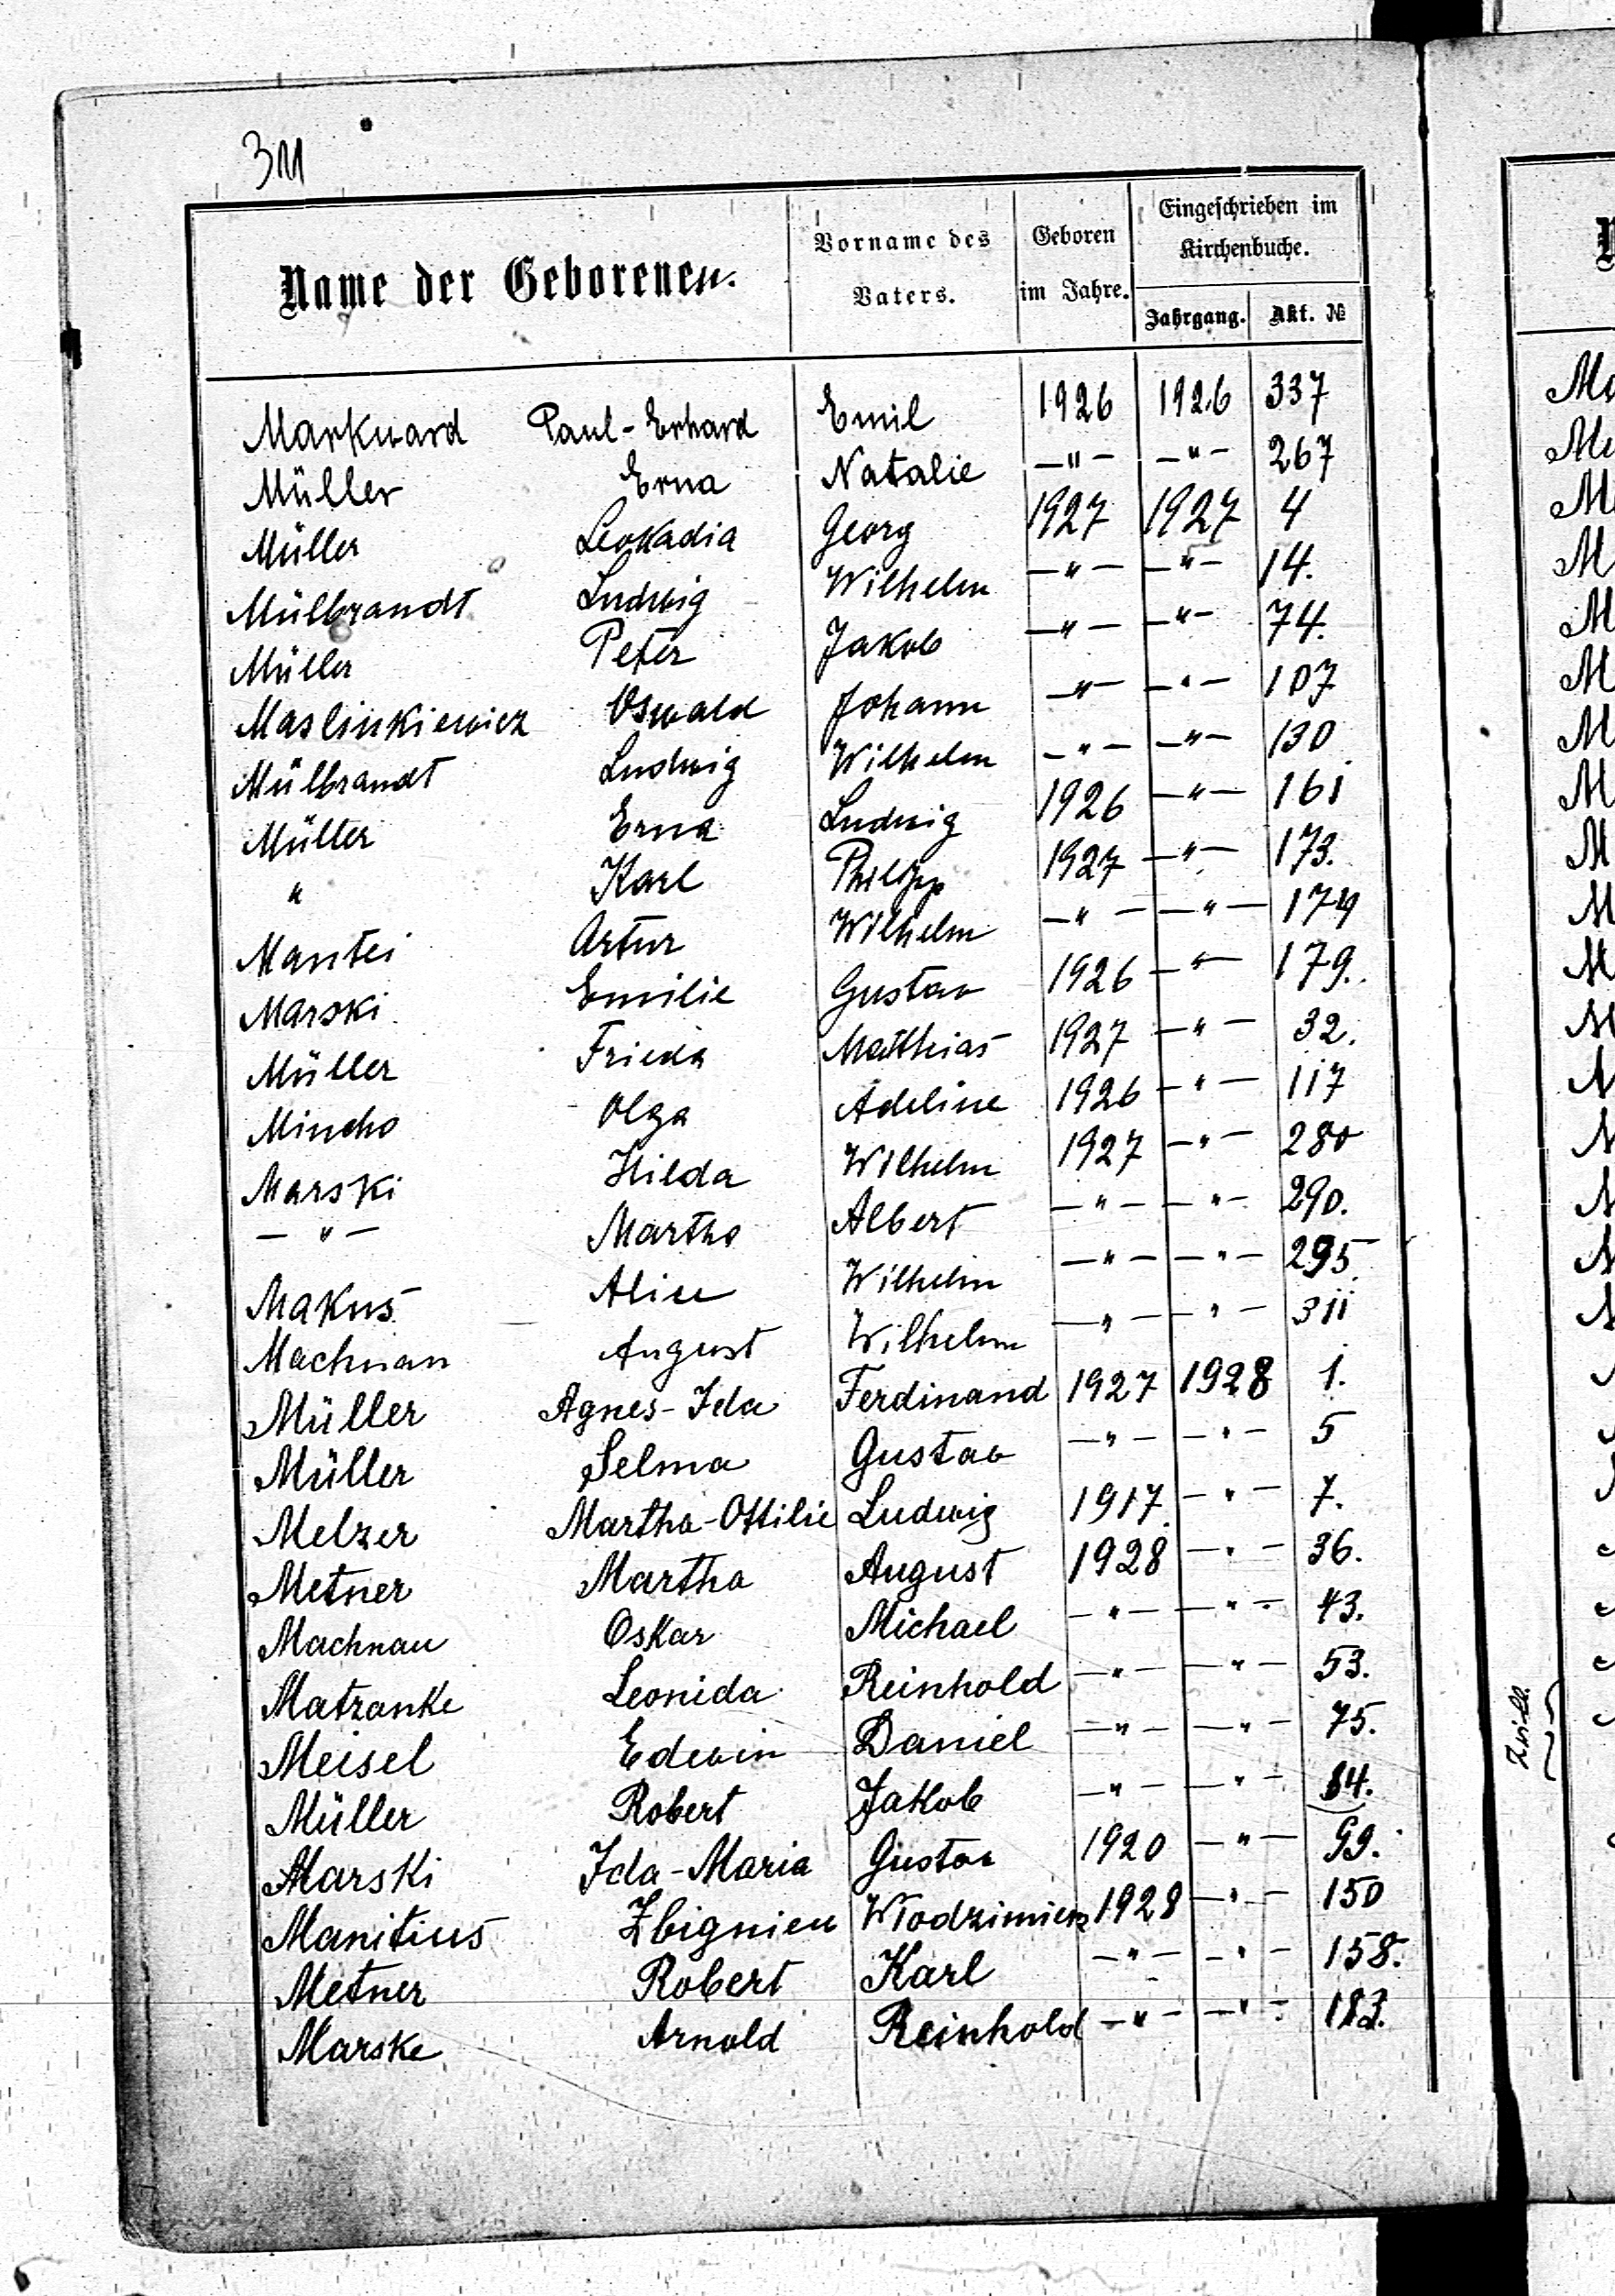 311
Name der Geborenen. Vorname des Vaters. Geboren im Jahre. Eingeschrieben im Kirchenbuche. Jahrgang. Akt. №
Markward Paul-Erhard Emil 1926 1926 337
Müller Erna Natalie —"— —"— 267
Müller Leokadia Georg 1927 1927 4
Mülbrandt Ludwig Wilhelm —"— —"— 14.
Müller Peter Jakob —"— —"— 74.
Maslinkiewicz Oswald Johann —"— —"— 107
Mülbrandt Ludwig Wilhelm —"— —"— 130
Müller Erna Ludwig 1926 —"— 161
" Karl Philipp 1927 —"— 173.
Mantei Artur Wilhelm —"— —"— 174
Marski Emilie Gustav 1926 —"— 179.
Müller Frieda Matthias 1927 —"— 32.
Mincho Olga Adeline 1926 —"— 117
Marski Hilda Wilhelm 1927 —"— 280
—"— Martha Albert —"— —"— 290.
Makus Alice Wilhelm —"— —"— 295
Machnau August Wilhelm —"— —"— 311
Müller Agnes-Ida Ferdinand 1927 1928 1.
Müller Selma Gustav —"— —"— 5
Melzer Martha-Ottilie Ludwig 1917 —"— 7.
Metner Martha August 1928 —"— 36.
Machnau Oskar Michael —"— —"— 43.
Matzanke Leonida Reinhold —"— —"— 53.
Meisel Edwin Daniel —"— —"— 75.
Müller Robert Jakob —"— —"— 84.
Marski Ida-Maria Gustav 1920 —"— 99.
Manitius Zbigniew Włodzimierz 1928 —"— 150
Metner Robert Karl —"— —"— 158.
Marske Arnold Reinhold —"— —"— 183.